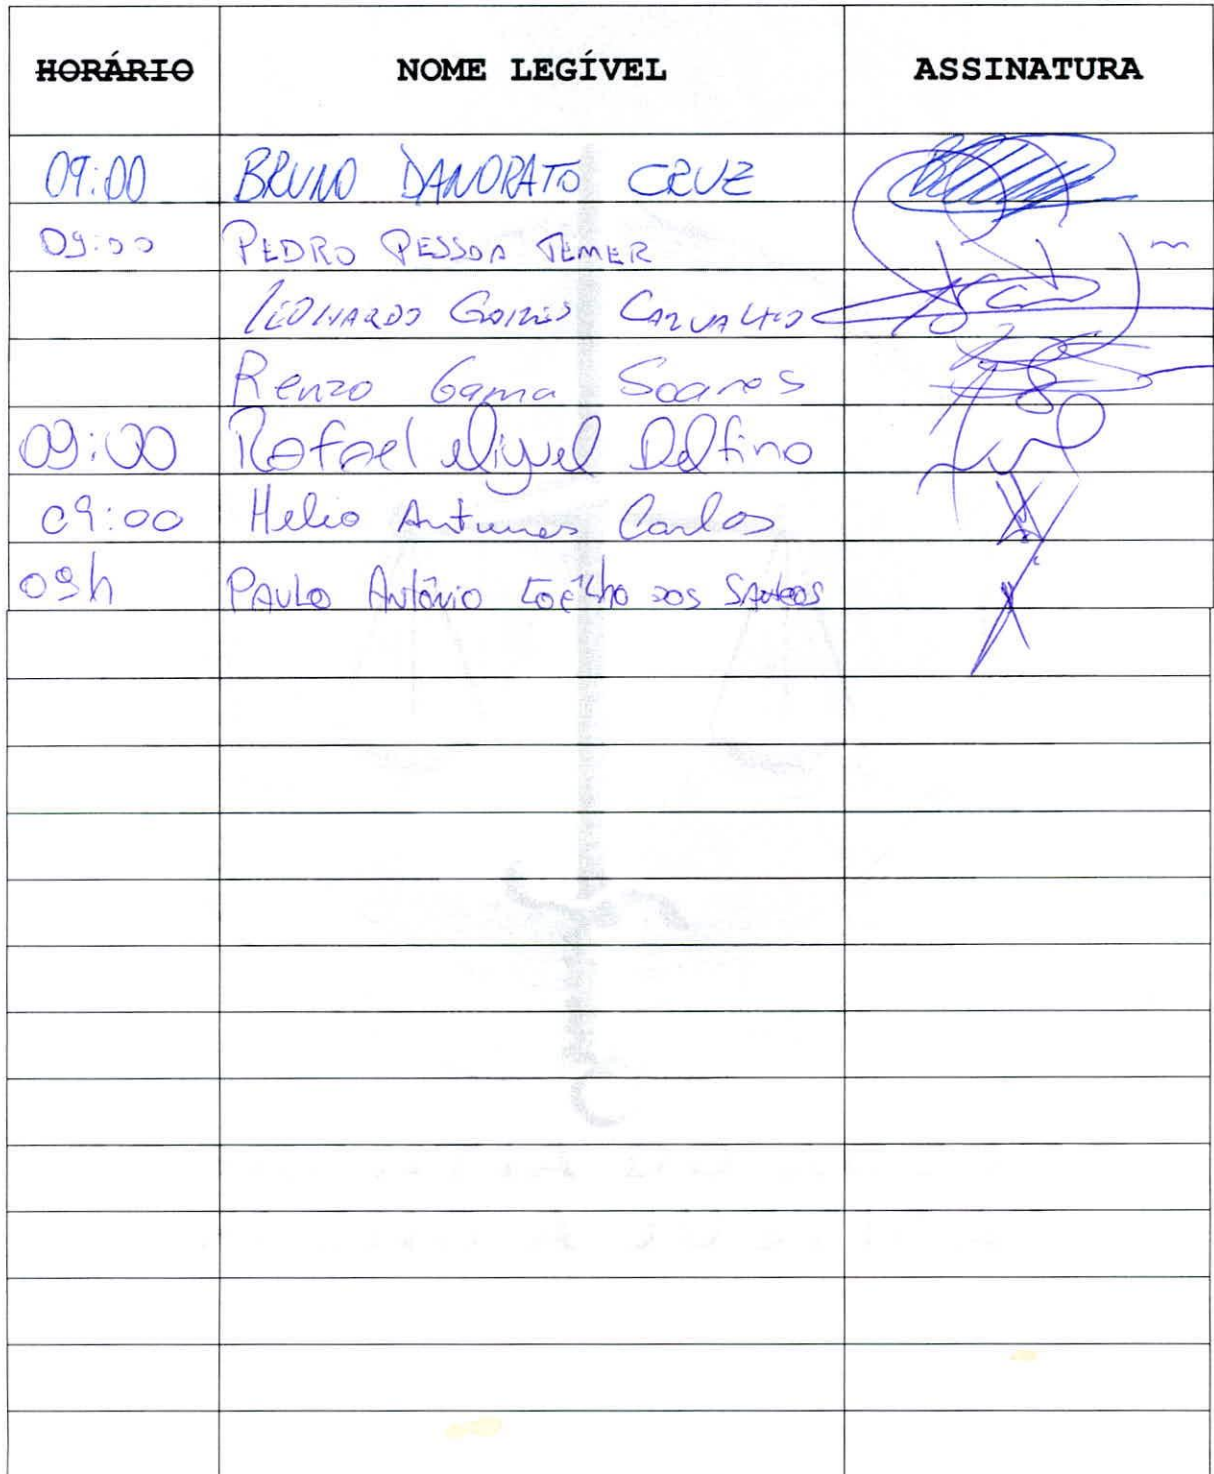 HORÁRIO NOME LEGÍVEL ASSINATURA
09:00 BRUNO DANORATO CRUZ
09:00 PEDRO PESSOA TEMER
LEONARDO GOMES CARVALHO
Renzo Gama Soares
09:00 Rafael Miguel Delfino
09:00 Helio Antunes Carlos
09h PAULO Antônio Coêlho dos SANTOS